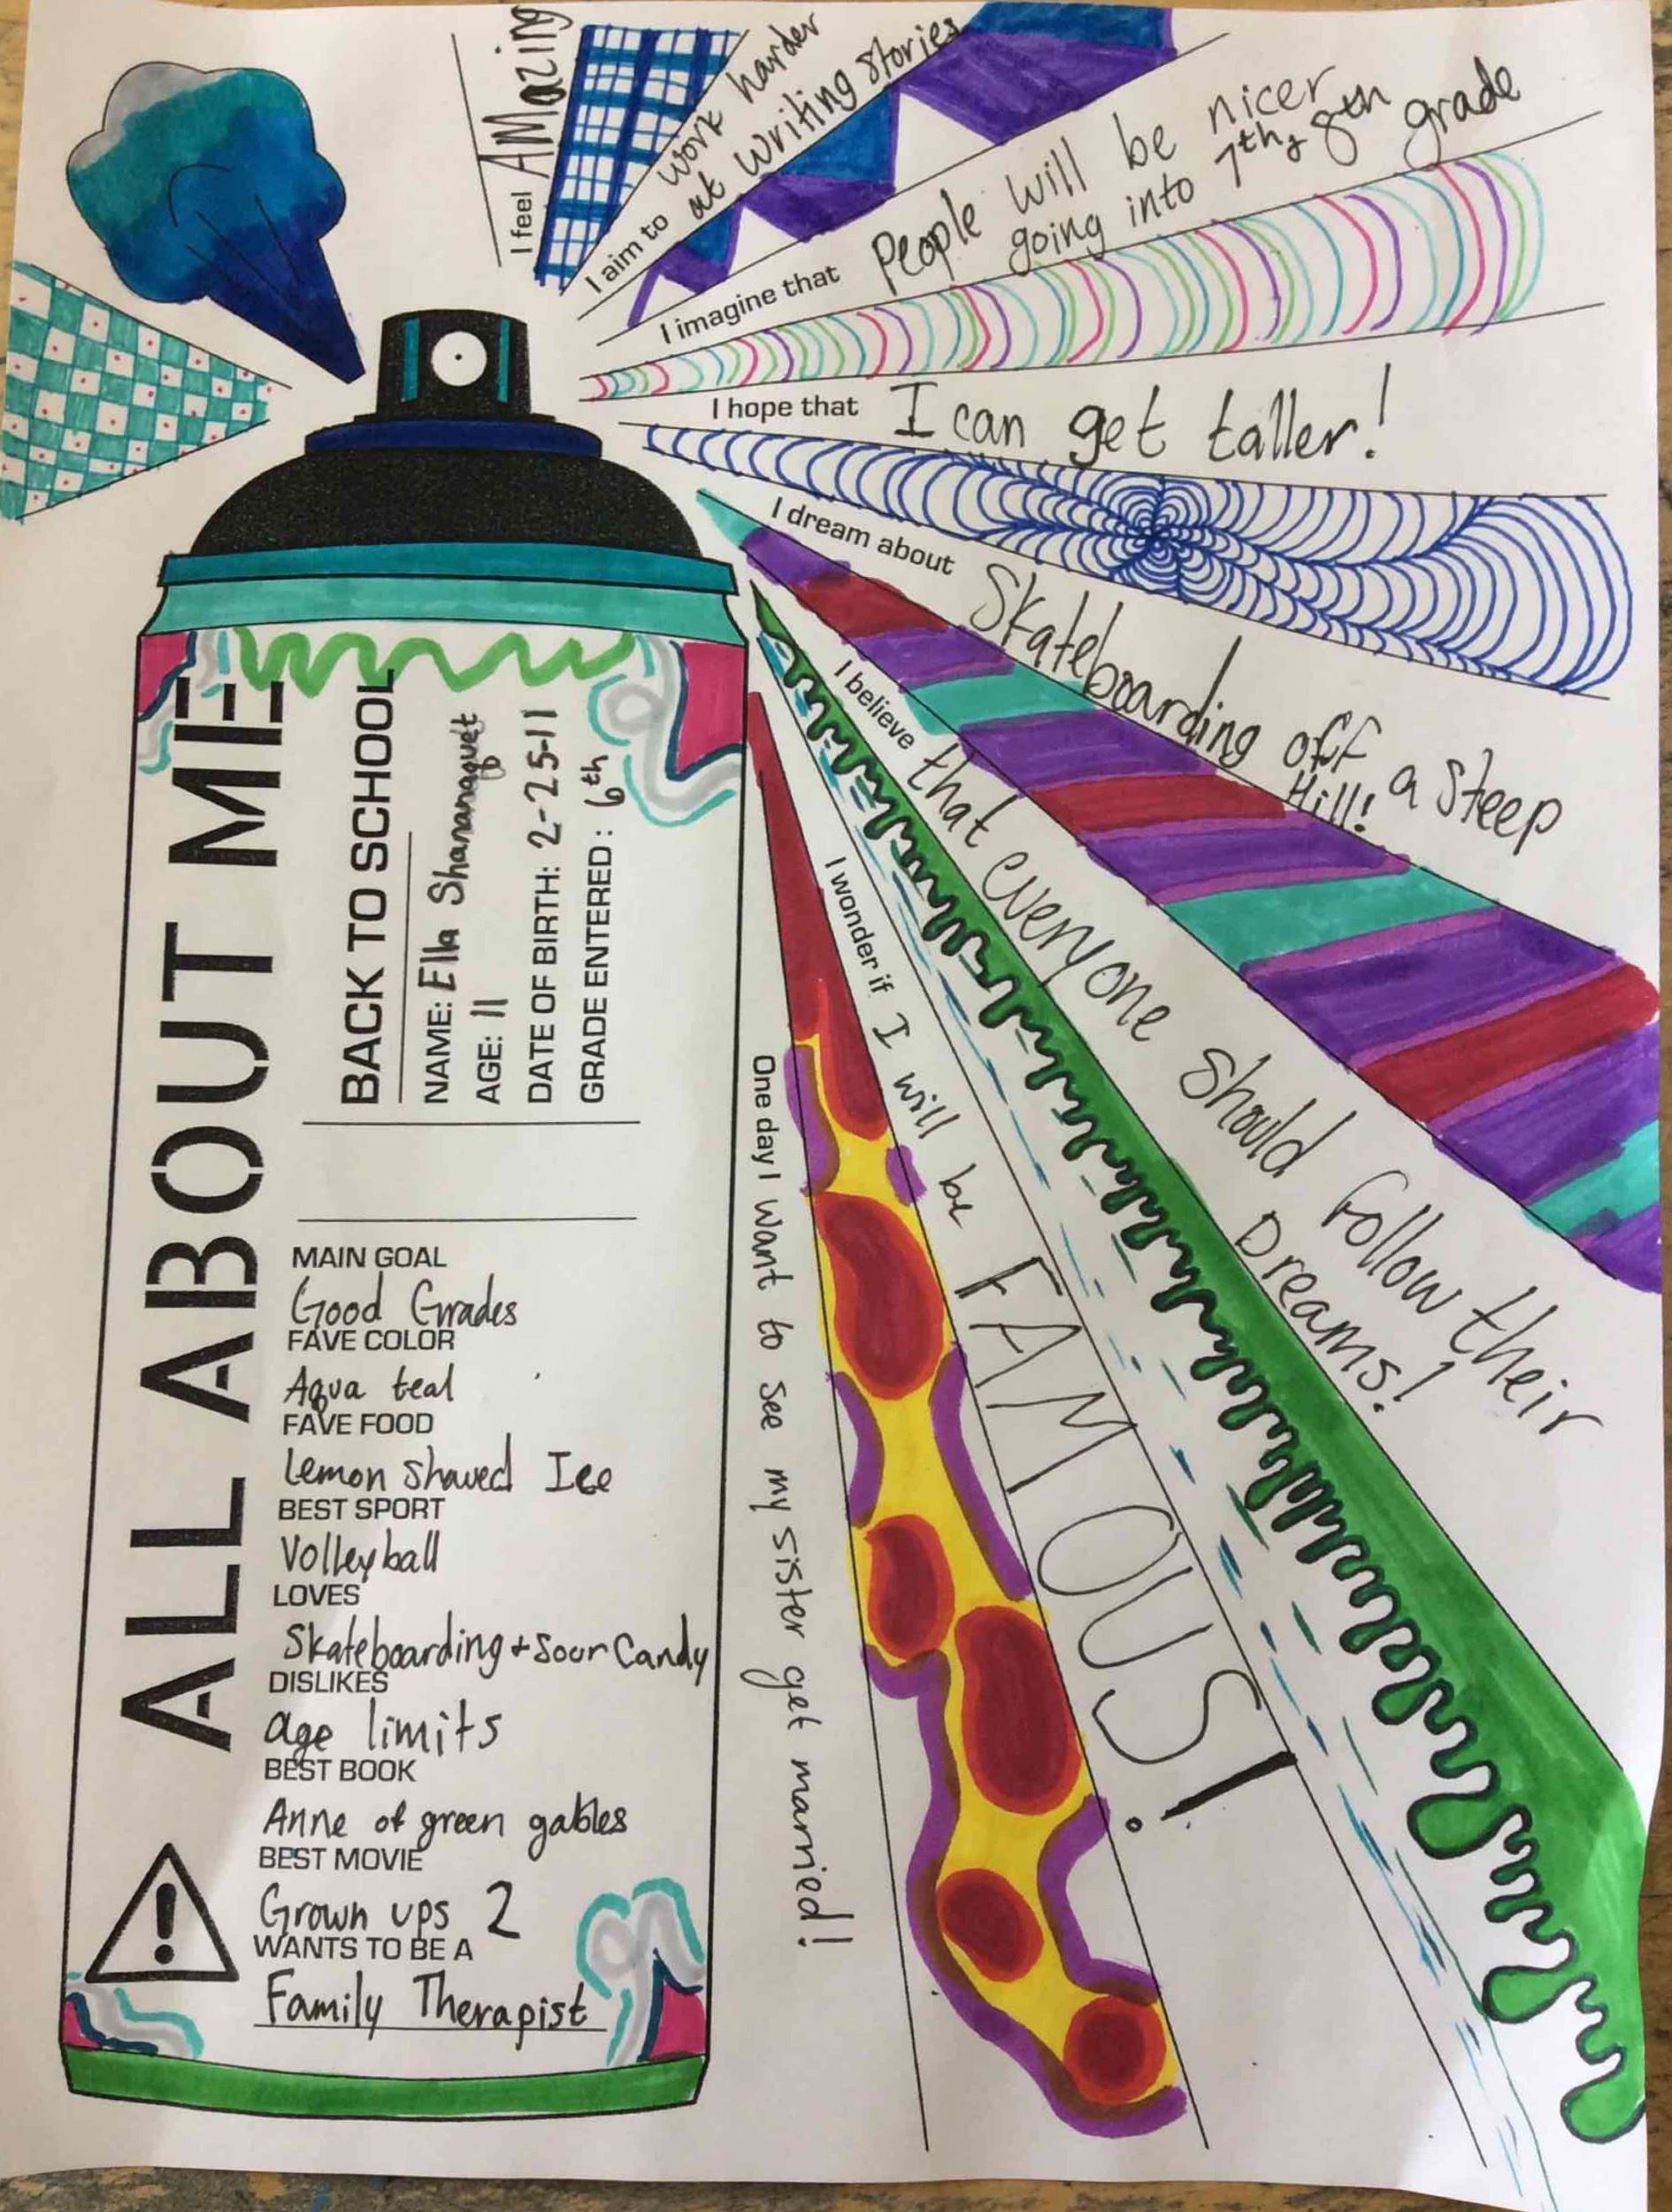 I feel AMazing
I aim to work harder
at writing stories
I imagine that People will be nicer
going into 7th, 8th grade
I hope that I can get taller!
I dream about Skateboarding off a steep
Hill!
I believe that everyone should follow their
Dreams!
I wonder if I will be FAMOUS!
One day I want to see my sister get married!
ALL ABOUT ME
BACK TO SCHOOL
NAME: Ella Shananaquet
AGE: 11
DATE OF BIRTH: 2-25-11
GRADE ENTERED: 6th
MAIN GOAL
Good Grades
FAVE COLOR
Aqua teal
FAVE FOOD
Lemon Shaved Ice
BEST SPORT
Volleyball
LOVES
Skateboarding + Sour Candy
DISLIKES
age limits
BEST BOOK
Anne of green gables
BEST MOVIE
Grown ups 2
WANTS TO BE A
Family Therapist
!